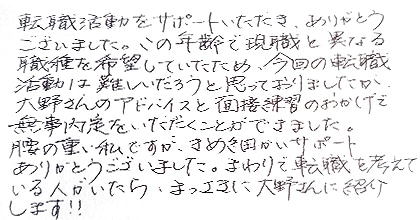 転職活動をサポートいただき、ありがとう
ございました。この年齢で現職と異なる
職種を希望していたため、今回の転職
活動は難しいだろうと思っておりましたが、
大野さんのアドバイスと面接練習のおかげで
無事内定をいただくことができました。
腰の重い私ですが、きめ細かいサポート
ありがとうございました。まわりで転職を考えて
いる人がいたら、まっさきに大野さんに紹介
します!!